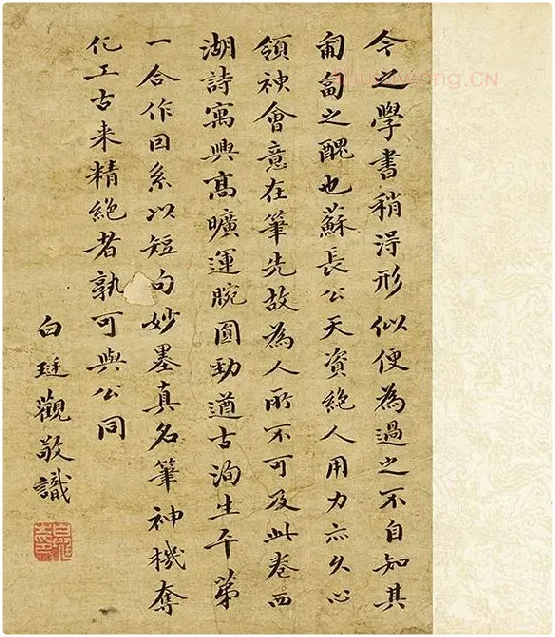 今之學書稍淂形似便為過之不自知其
匍匐之醜也蘇長公天資絶人用力亦久心
領神會意在筆先故為人所不可及此卷西
湖詩寓興髙曠運腕圓勁遒古洵生平第
一合作因系以短句妙墨真名筆神機奪
化工古来精絶者孰可與公同
白珽觀敬識